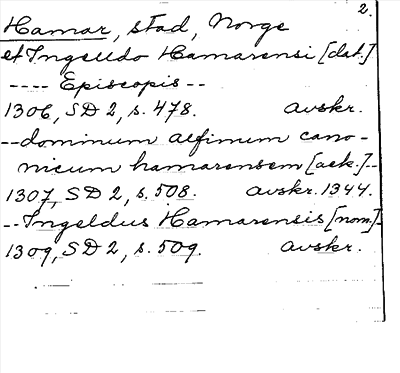 2.
Hamar, stad, Norge
et Ingelldo Hamarensi [dat.]
---- Episcopis --
1306, SD 2, s. 478. avskr.
-- dominum alfimum cano-
nicum hamarensem [ack.] --
1307, SD 2, s. 508. avskr. 1344.
-- Ingeldus Hamarensis [nom.] -
1309, SD 2, s. 509. avskr.